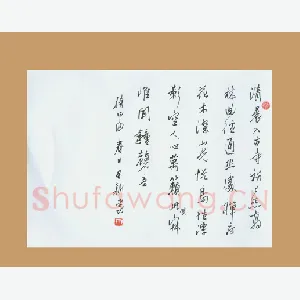 清晨入古寺初日照高
林曲徑通幽處禪房
花木深山光悦鳥性潭
影空人心萬籟此俱寂
惟聞鐘磬音
Shufawang.CN